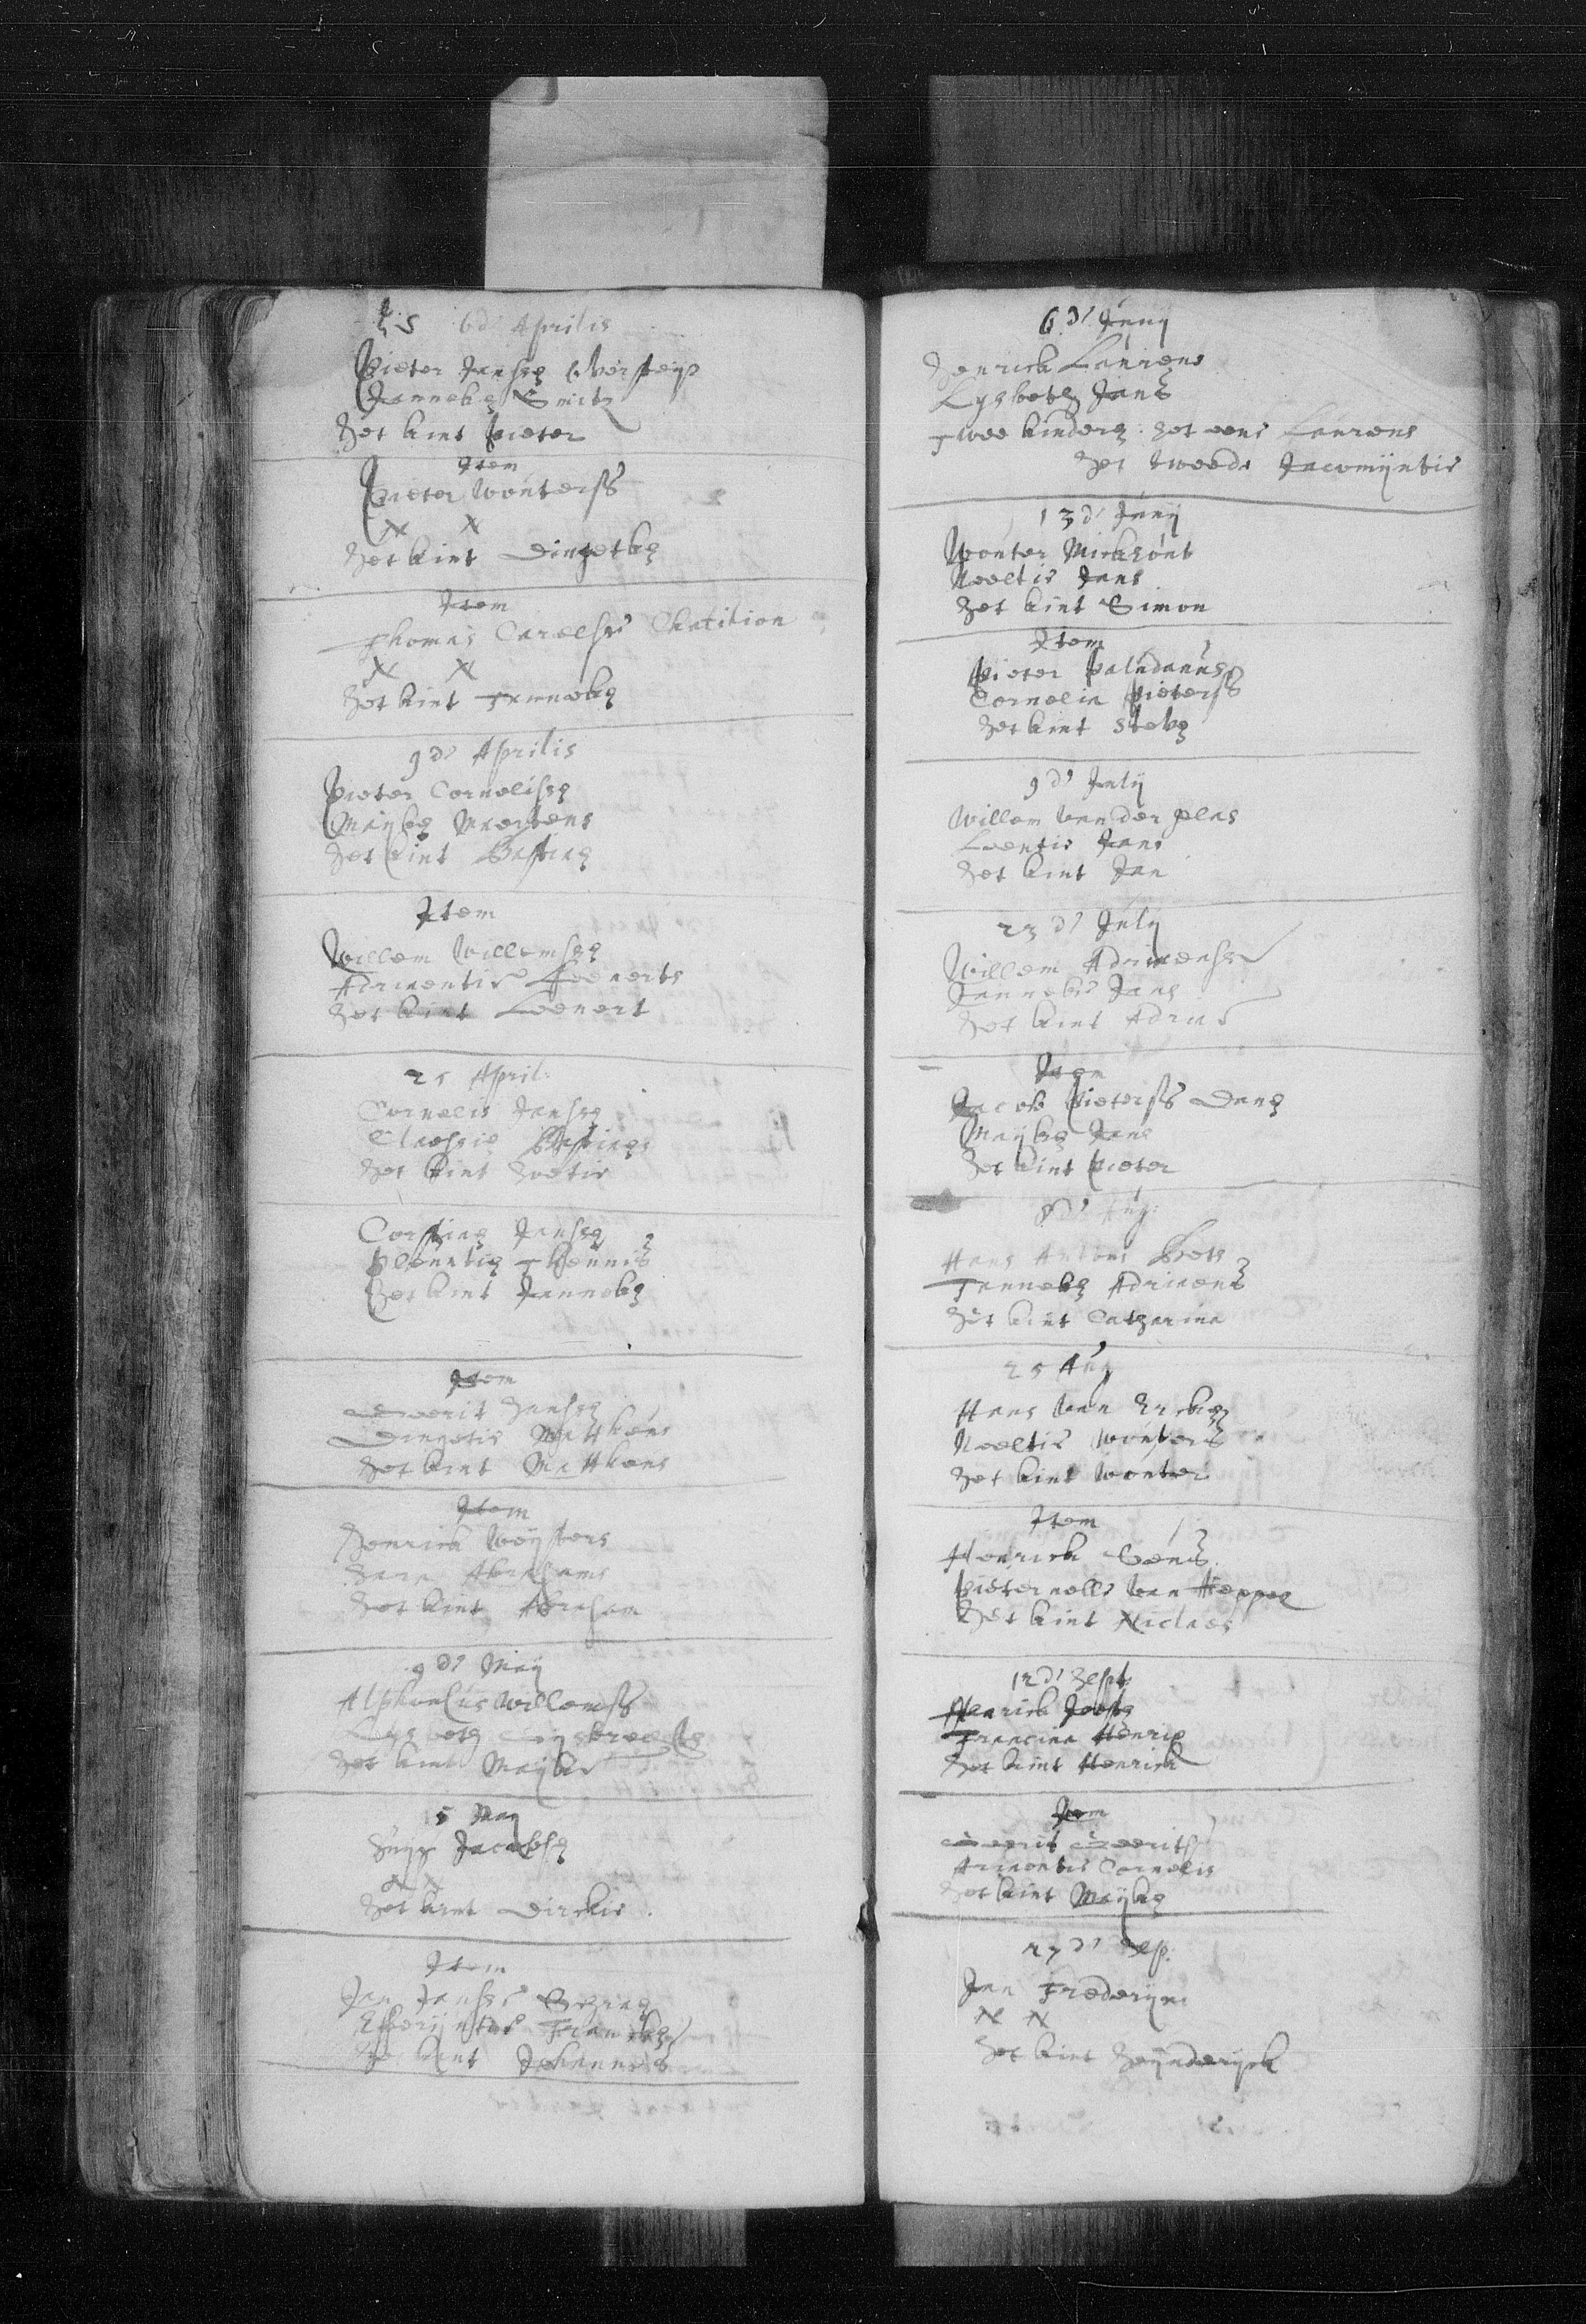 6 d' Aprilis
Pieter Janse
Janneke Smits
Het kint Pieter
Item
Pieter Wouterss
N N
Het kint Dingetke
Item
Thomas Carelse
N N
Het kint
9 d' Aprilis
Pieter Cornelisse
Mayke Maertens
Het kint Bastiae
Item
Willem Willemsse
Adriaentie Leenerts
Het kint Leenert
25 April:
Cornelis Janse
Claesie Bastiaens
Het kint
Corstiae Janse
Pleuntie Theunis
Het kint Janneke
Item
Geerit Janse
Dingetie Mattheus
Het kint Mattheus
Item
Henrick
Sara Abrahams
Het kint Abraham
9 d' May
Alphonsus Willemss
Lysbeth
Het kint Mayke
15 May
Huyg Jacobse
N N
Het kint Dirckie
Item
Jan Janse
Het kint Johannes
6 d' Juny
Henrick Laurens
Lysbeth Jans
Twee kindere: het eene Laurens
Het tweede Jacomyntie
13 d' Juny
Wouter Mickhout
Neeltie Jans
Het kint Simon
Item
Pieter Paludanus
Cornelia Pieterss
Het kint
9 d' July
Willem van der plas
Leentie Jans
Het kint Jan
23 d' July
Willem Adriaense
Janneke Jans
Het kint
Item
Jacob Pieterss
Mayke Jans
Het kint Pieter
d' Aug:
Hans Antoni
Tanneke Adriaens
Het kint Catharina
25 Aug
Hans van
Neeltie Wouters
Het kint Wouter
Item
Henrick
Pieternelle van
Het kint Niclaes
12 d' Sept:
Henrick Joosts
Francina Henrix
Het kint Henrick
Item
Geerit Geerits
Ariaentie Cornelis
Het kint Mayke
27 d' Sep:
Jan Frederyx
N N
Het kint Heynderyck